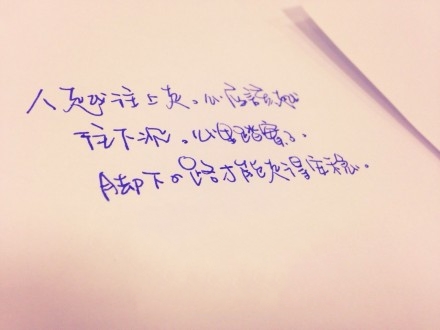 人往上走、心应该
往下沉、心里踏實了、
脚下的路才能走得安稳。